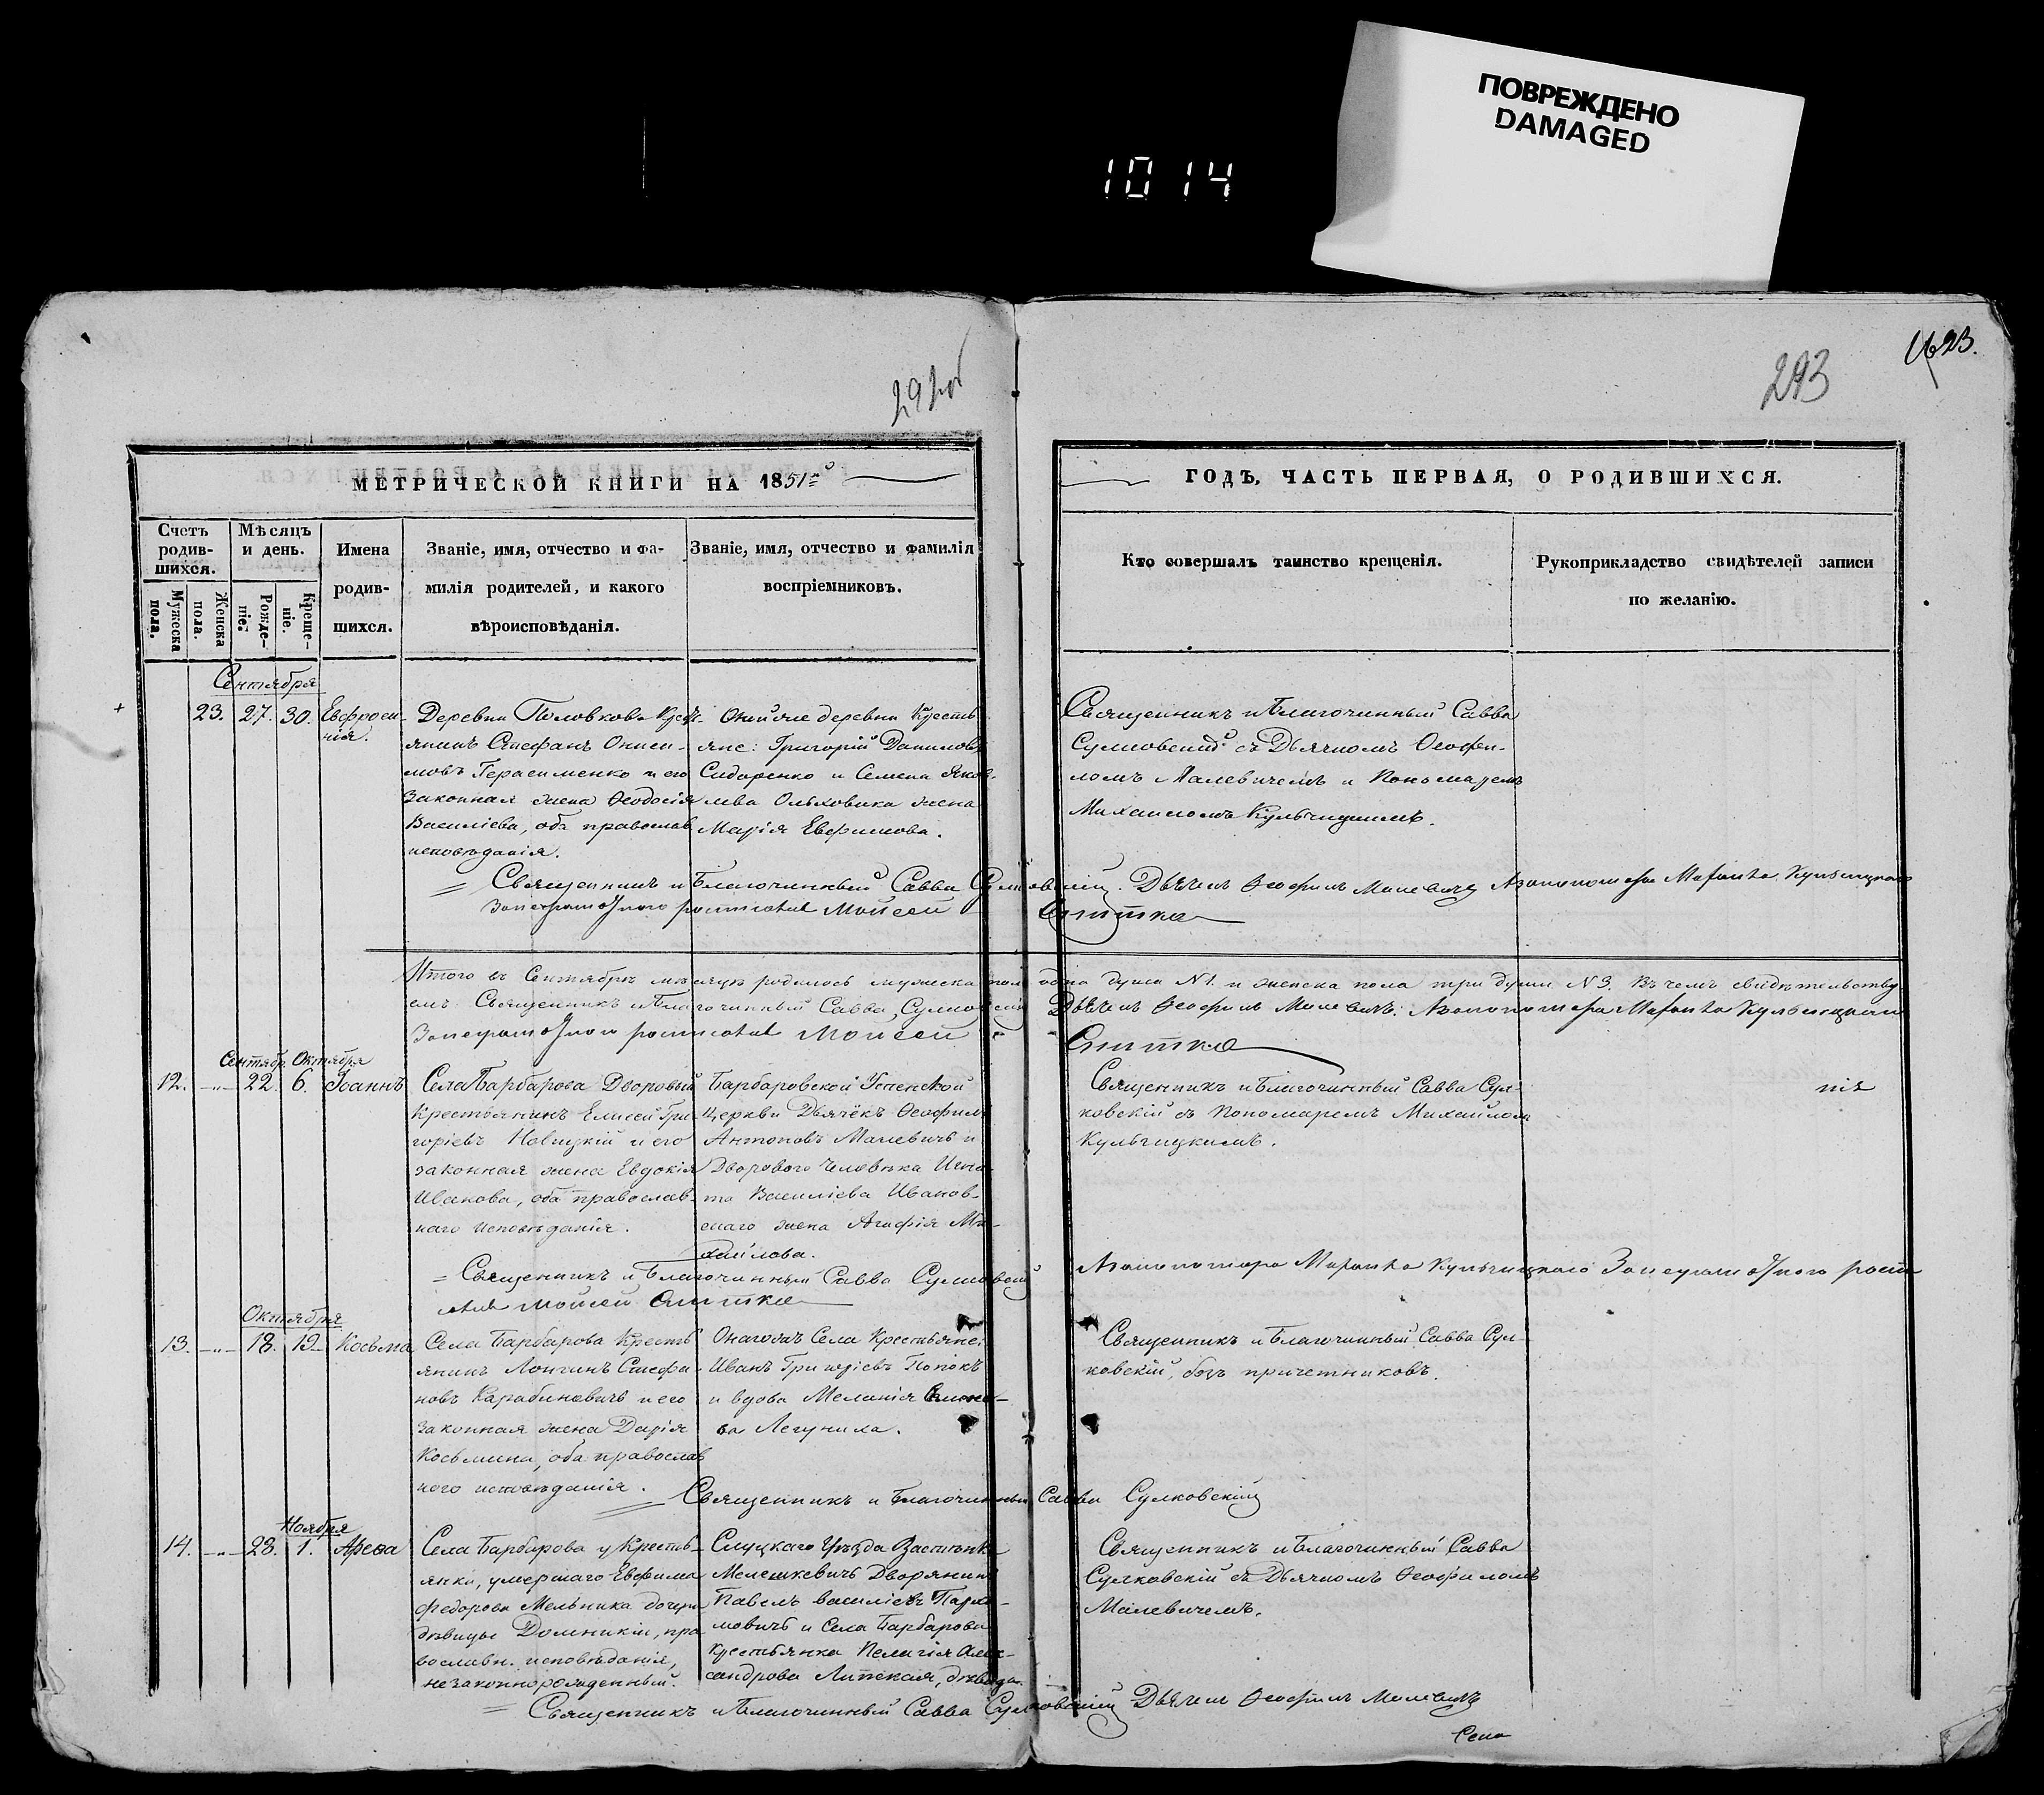 ПОВРЕЖДЕНО
DAMAGED
1014
292об
293
23.
МЕТРИЧЕСКОЙ КНИГИ НА 1851го
ГОДЪ, ЧАСТЬ ПЕРВАЯ, О РОДИВШИХСЯ.
Счетъ родив-шихся.
Мужеска пола.
Женска пола.
Мѣсяцъ и день.
Рожде-ніе.
Креще-ніе.
Имена родив-шихся.
Званіе, имя, отчество и фа-
милія родителей, и какого
вѣроисповѣданія.
Званіе, имя, отчество и фамилія
воспріемниковъ.
Кто совершалъ таинство крещенія.
Рукоприкладство свидѣтелей записи
по желанію.
Сентября
23. 27. 30. Евфроси-
нія.
Деревни Половкова Крест-
янинъ Стефанъ Ониси-
мовъ Герасименко и его
законная жена Ѳеодосія
Василіева, оба православ
исповѣданія.
Оной же деревни Кресть
яне: Григорій Даниловъ
Сидоренко и Семена Яков-
лева Ольховика жена
Марія Евфимова.
Священникъ и Благочинный Савва
Сулковский съ Дьячкомъ Ѳеофи-
ломъ Малевичемъ и Пономаремъ
Михаиломъ Кульчицкимъ.
Священникъ и Благочинный Савва Сулковскій Дьячекъ Ѳеофилъ Малевичъ
Мойсей Слитка
Итого въ Сентябрѣ мѣсяцѣ родилось мужеска пола одна душа №1. и женска пола три души №3. Въ чемъ свидѣтельству
емъ: Священникъ и Благочинный Савва Сулковскій Дьячекъ Ѳеофилъ Малевичъ.
Мойсей Слитка
Сентябр. Октября
12. —„— 22. 6. Іоаннъ
Села Барбарова Дворовый
Крестьянинъ Елисей Гри-
горіевъ Новицкій и его
законная жена Евдокія
Иванова, оба православ-
наго исповѣданія.
Барбаровской Успенской
Церкви Дьячёкъ Ѳеофилъ
Антоновъ Малевичъ и
Дворового человѣка Игна-
та Василіева Иванов-
скаго жена Агафія Ми-
хайлова.
Священникъ и Благочинный Савва Сул-
ковскій съ Пономаремъ Михайломъ
Кульчицкимъ.
нія
Священникъ и Благочинный Савва Сулковскій
Мойсей Слитка
Октября
13. —„— 18. 19. Косьма
Села Барбарова Кресть
янинъ Лонгинъ Стефа-
новъ Карабиновичъ и его
законная жена Дарія
Косьмина, оба православ
ного исповѣданія.
Онагожъ Села Крестьяне:
Иванъ Григоріевъ Попокъ
и вдова Меланія
ва Легунила.
Священникъ и Благочинный Савва Сул-
ковскій, безъ причетниковъ.
Священникъ и Благочинный Савва Сулковскій
Ноября
14. —„— 28. 1. Арева
Села Барбарова у Кресть-
янки, умершаго Евфима
Федорова Мельника дочери
дѣвицы Домникіи, пра
вославн. исповѣданія,
незаконнорожденный.
Слуцкаго Уѣзда Застѣнка
Мелешкевичъ Дворянинъ
Павелъ Василіевъ Парха-
мовичъ и Села Барбарова
крестьянка Пелагія Алек-
сандрова Липская, дѣвица.
Священникъ и Благочинный Савва
Сулковскій съ Дьячкомъ Ѳеофиломъ
Малевичемъ.
Священникъ и Благочинный Савва Сулковскій Дьячекъ Ѳеофилъ Малевичъ